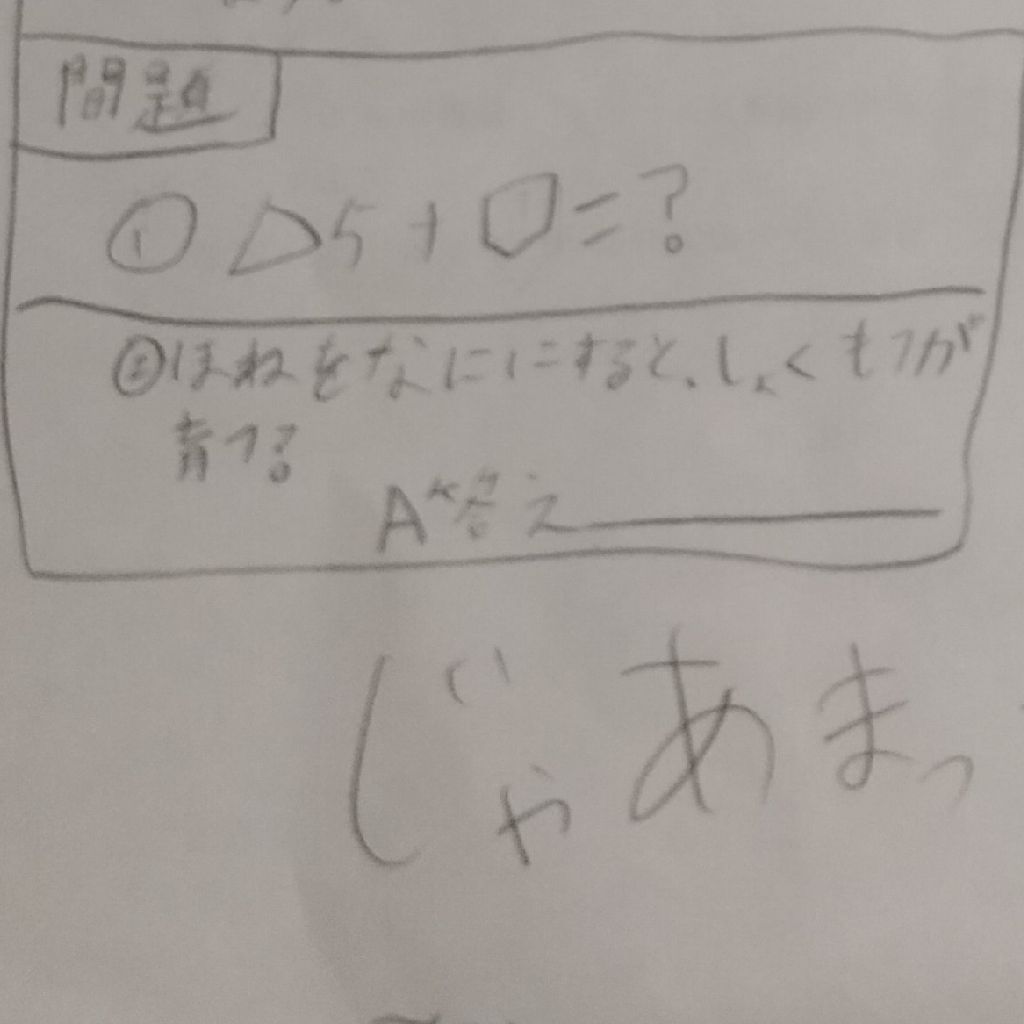 問題
① △5+⬠=?
②ほねをなににすると、しょくもつが
育つ?
A 答え
じゃあまっ